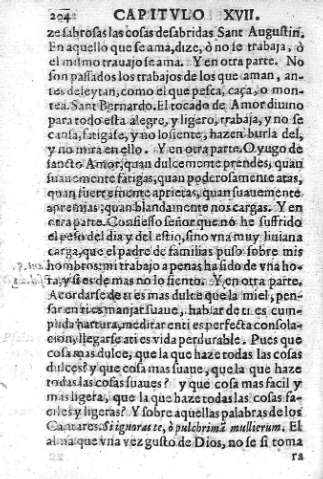 204 CAPITVLO XVII.
ze sabrosas las cosas desabridas Sant Augustin.
En aquello que se ama, dize, ò no se trabaja, ò
el mismo trauajo se ama. Y en otra parte. No
son passados los trabajos de los que aman, an-
tes deleytan, como el que pesca, caça, o mon-
tea. Sant Bernardo. El tocado de Amor diuino
para todo esta alegre, y ligero, trabaja, y no se
cansa, fatigase, y no lo siente, hazen burla del,
y no mira en ello. Y en otra parte. O yugo de
sancto Amor, quan dulcemente prendes, quan
suauemente fatigas, quan poderosamente atas,
quan fuertemente aprietas, quan suauemente
apremias, quan blandamente nos cargas. Y en
otra parte. Confiesso señor que no he suffrido
el peso del dia y del estio, sino vna muy liuiana
carga, que el padre de familias puso sobre mis
hombros: mi trabajo a penas ha sido de vna ho-
ra, y si es de mas no lo siento. Y en otra parte.
Acordarse de ti es mas dulce que la miel, pen-
sar en ti es manjar suaue, hablar de ti es cum-
plida hartura, meditar en ti es perfecta consola-
cion, llegarse a ti es vida perdurable. Pues que
cosa mas dulce, que la que haze todas las cosas
dulces? y que cosa mas suaue, que la que haze
todas las cosas suaues? y que cosa mas facil y
mas ligera, que la que haze todas las cosas fa-
ciles y ligeras? Y sobre aquellas palabras de los
Cantares. Si ignoras te, ò pulchrima mullierum. El
alma que vna vez gusto de Dios, no se si toma
ra